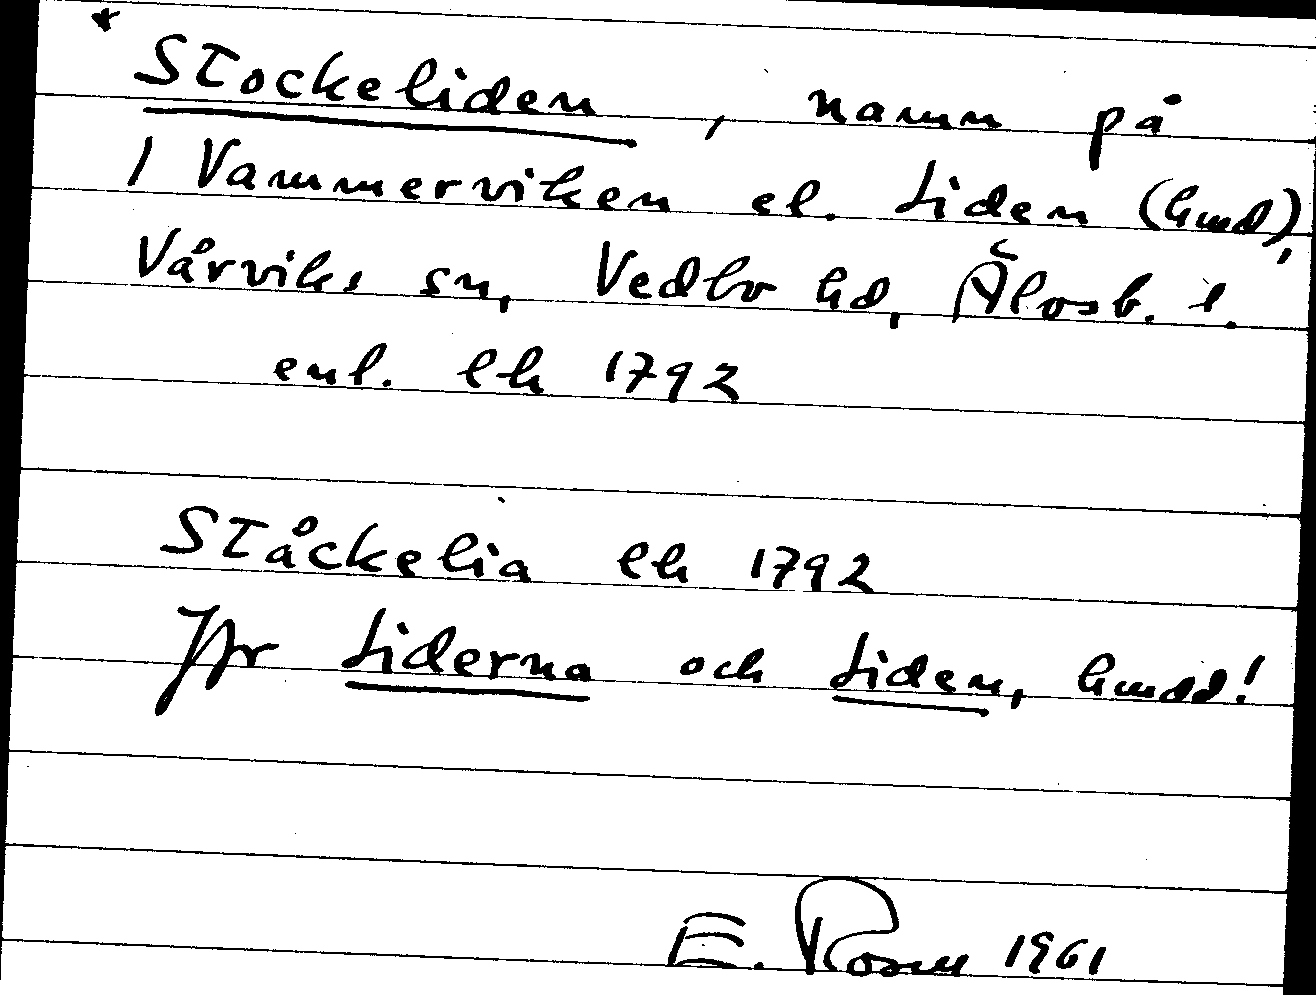 * Stockeliden, namn på
1 Vammerviken el. Liden (hmd),
Vårviks sn, Vedbo hd, Älvsb. l.
enl. lh 1792
Ståckelia lh 1792
Jfr Liderna och Liden, hmdd!
E. Rosén 1961